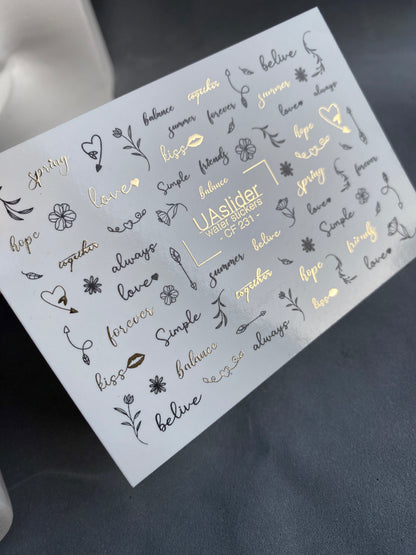 belive
together
summer
always
balance
summer
forever
love
kiss
hope
spring
Simple
friends
balance
spring
forever
love
UAslider
water stickers
CF 231 -
love
Simple
friends
hope
together
always
summer
belive
hope
love
love
together
kiss
forever
Simple
always
kiss
Balance
belive